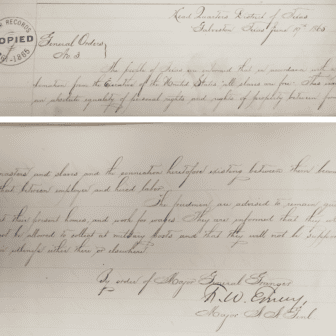 RECORDS
COPIED
1861-1865
Head Quarters District of Texas
Galveston Texas June 19th 1865
General Orders
No. 3
The people of Texas are informed that in accordance with a
Proclamation from the Executive of the United States "all slaves are free." This
an absolute equality of personal rights and rights of property between
masters and slaves and the connection heretofore existing between them
that between employer and hired labor.
The freedmen are advised to remain
at their present homes, and work for wages. They are informed that they
not be allowed to collect at military posts and that they will not be supported
in idleness either there or elsewhere.
By order of Major General Granger
F. W. Emery
Major A A Genl